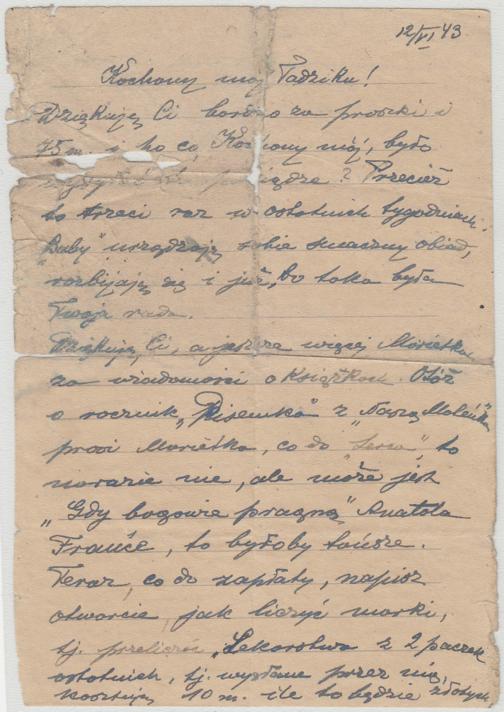 12/VI 43
Kochany mój Tadziku!
Dziękuję Ci bardzo za proszki i
75 m. i po co, Kochany mój, było
? Przecież
to trzeci raz w ostatnich tygodniach.
"Baby" urządzają sobie smaczny obiad,
rozbijają się i już, bo taka była
Twoja rada.
Dziękuję Ci, a jeszcze więcej Marietka
za wiadomości o książkach. Otóż
o rocznik "Pisemka" z "Naszą Maleńką"
prosi Marietka, co do "Serca", to
narazie nie, ale może jest
"Gdy bogowie pragną" Anatola
France, to byłoby tańsze.
Teraz, co do zapłaty, napisz
otwarcie, jak liczyć marki,
tj. przeliczać. Lekarstwa z 2 paczek
ostatnich, tj. wysłane przez nią,
kosztują 10 m. ile to będzie złotych